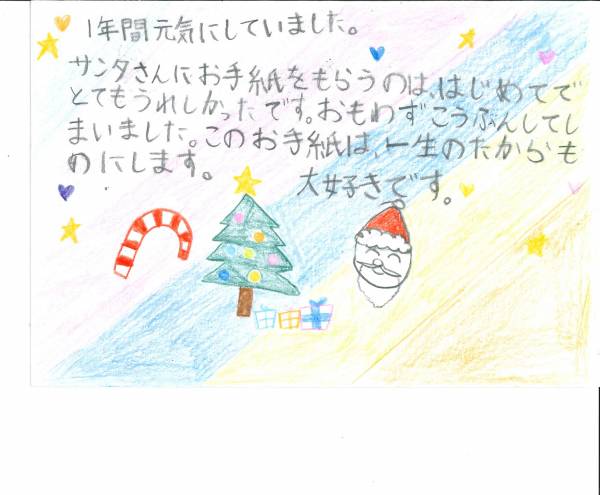 1年間元気にしていました。
サンタさんにお手紙をもらうのは、はじめてで
とてもうれしかったです。おもわずこうふんしてし
まいました。このお手紙は、一生のたからも
のにします。
大好きです。